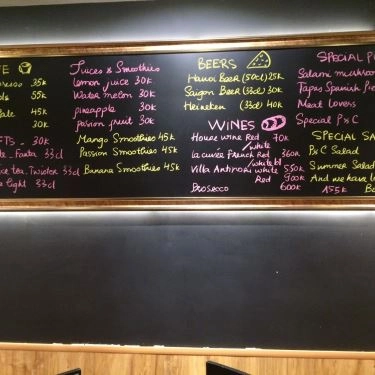 TE
presso 35k
ols 55k
late 45k
30k
30k
FTS - 30k
te, Fanta 33cl
ice tea, Twister 33cl
a light 33cl
Juices & Smoothies
Lemon juice 30k
Water melon 30k
pineapple 30k
Passion fruit 30k
Mango Smoothies 45k
Passion Smoothies 45k
Banana Smoothies 45k
BEERS
Hanoi Beer (50cl) 25k
Saigon Beer (33cl) 30k
Heineken (33cl) 40k
WINES
House wine Red 70k
/white
La cuvée French Red 360k
/white
Villa Antinori white 550k
Red 900k
Prosecco 600k
SPECIAL P
Salami mushroo
Tapas Spanish Pi
Meat Lovers
Special PxC
SPECIAL SA
PxC Salad
Summer Salad
And we have
155k